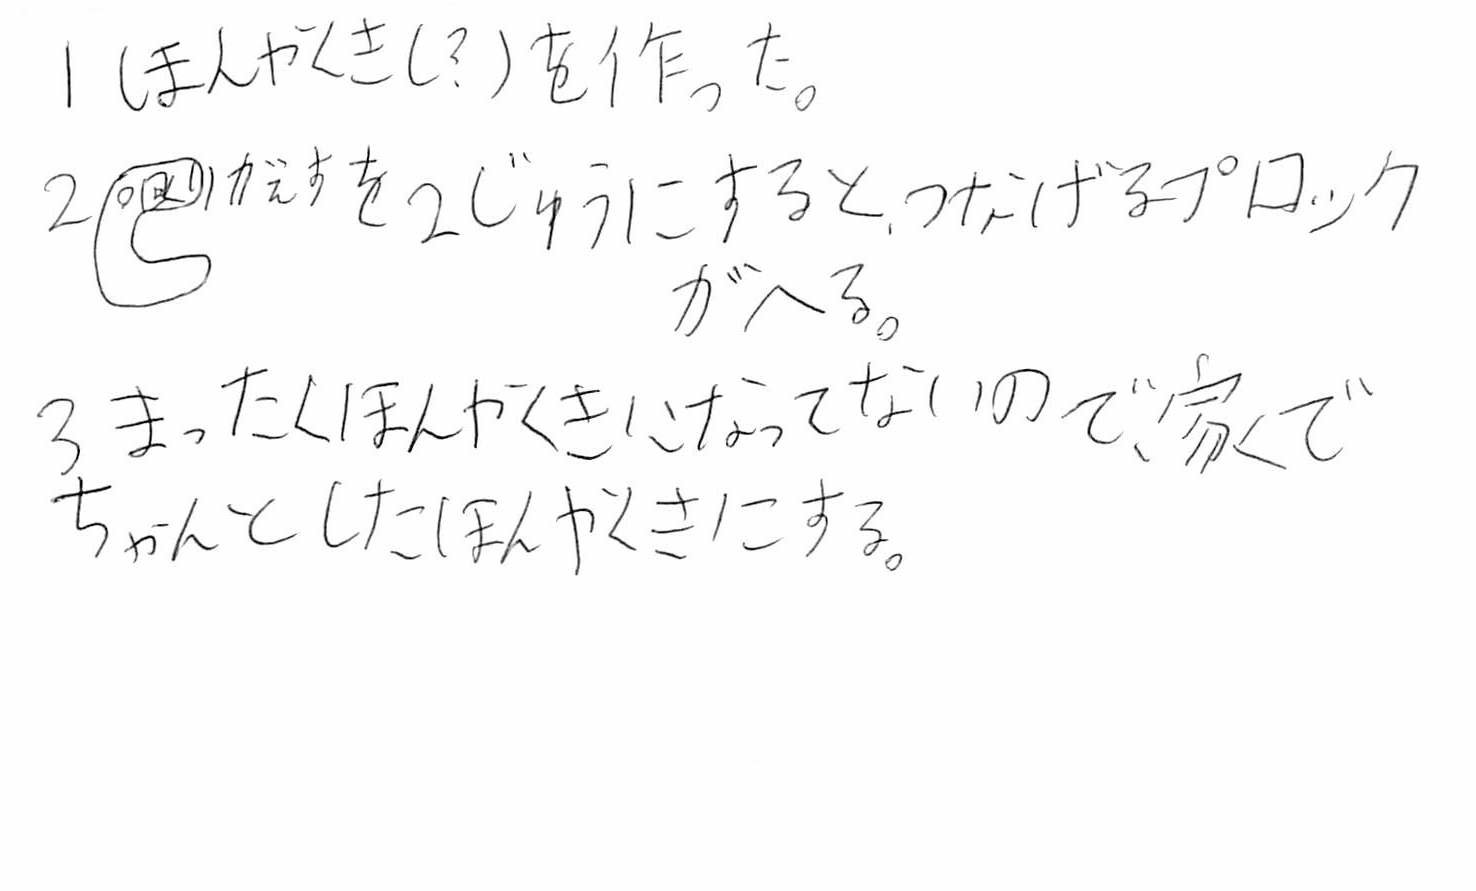 1 ほんやくき(?)を作った。
2 くりがえすを2じゅうにすると、つなげるブロック
がへる。
3 まったくほんやくきになってないので、家で
ちゃんとしたほんやくきにする。